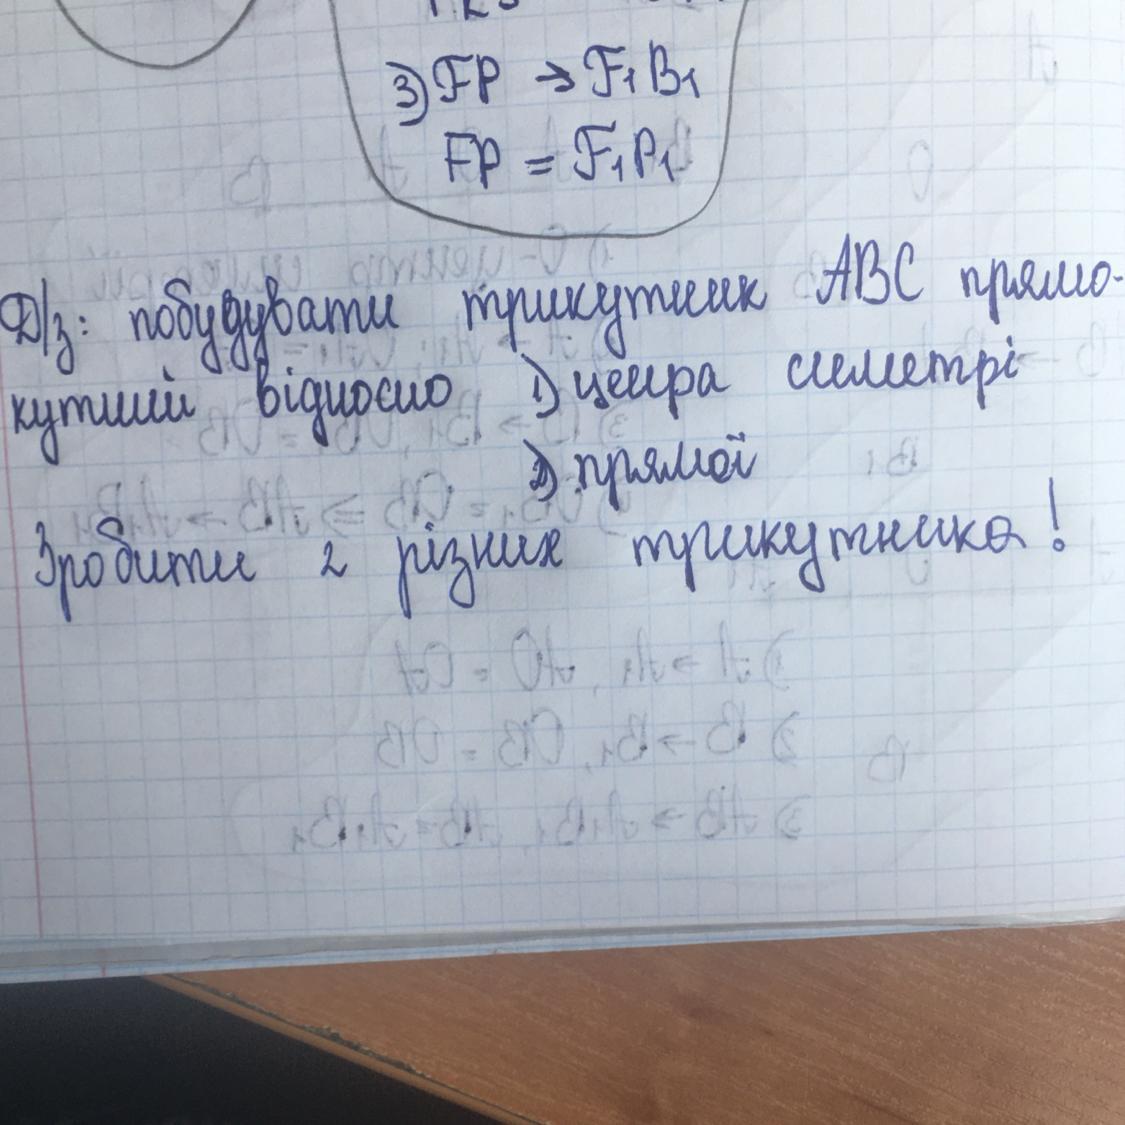 3) FP → F₁B₁
FP = F₁P₁
Д/з: побудувати трикутник ABC прямо-
кутний відносно 1) ценра симетрі
2) прямої
Зробити 2 різних трикутника!